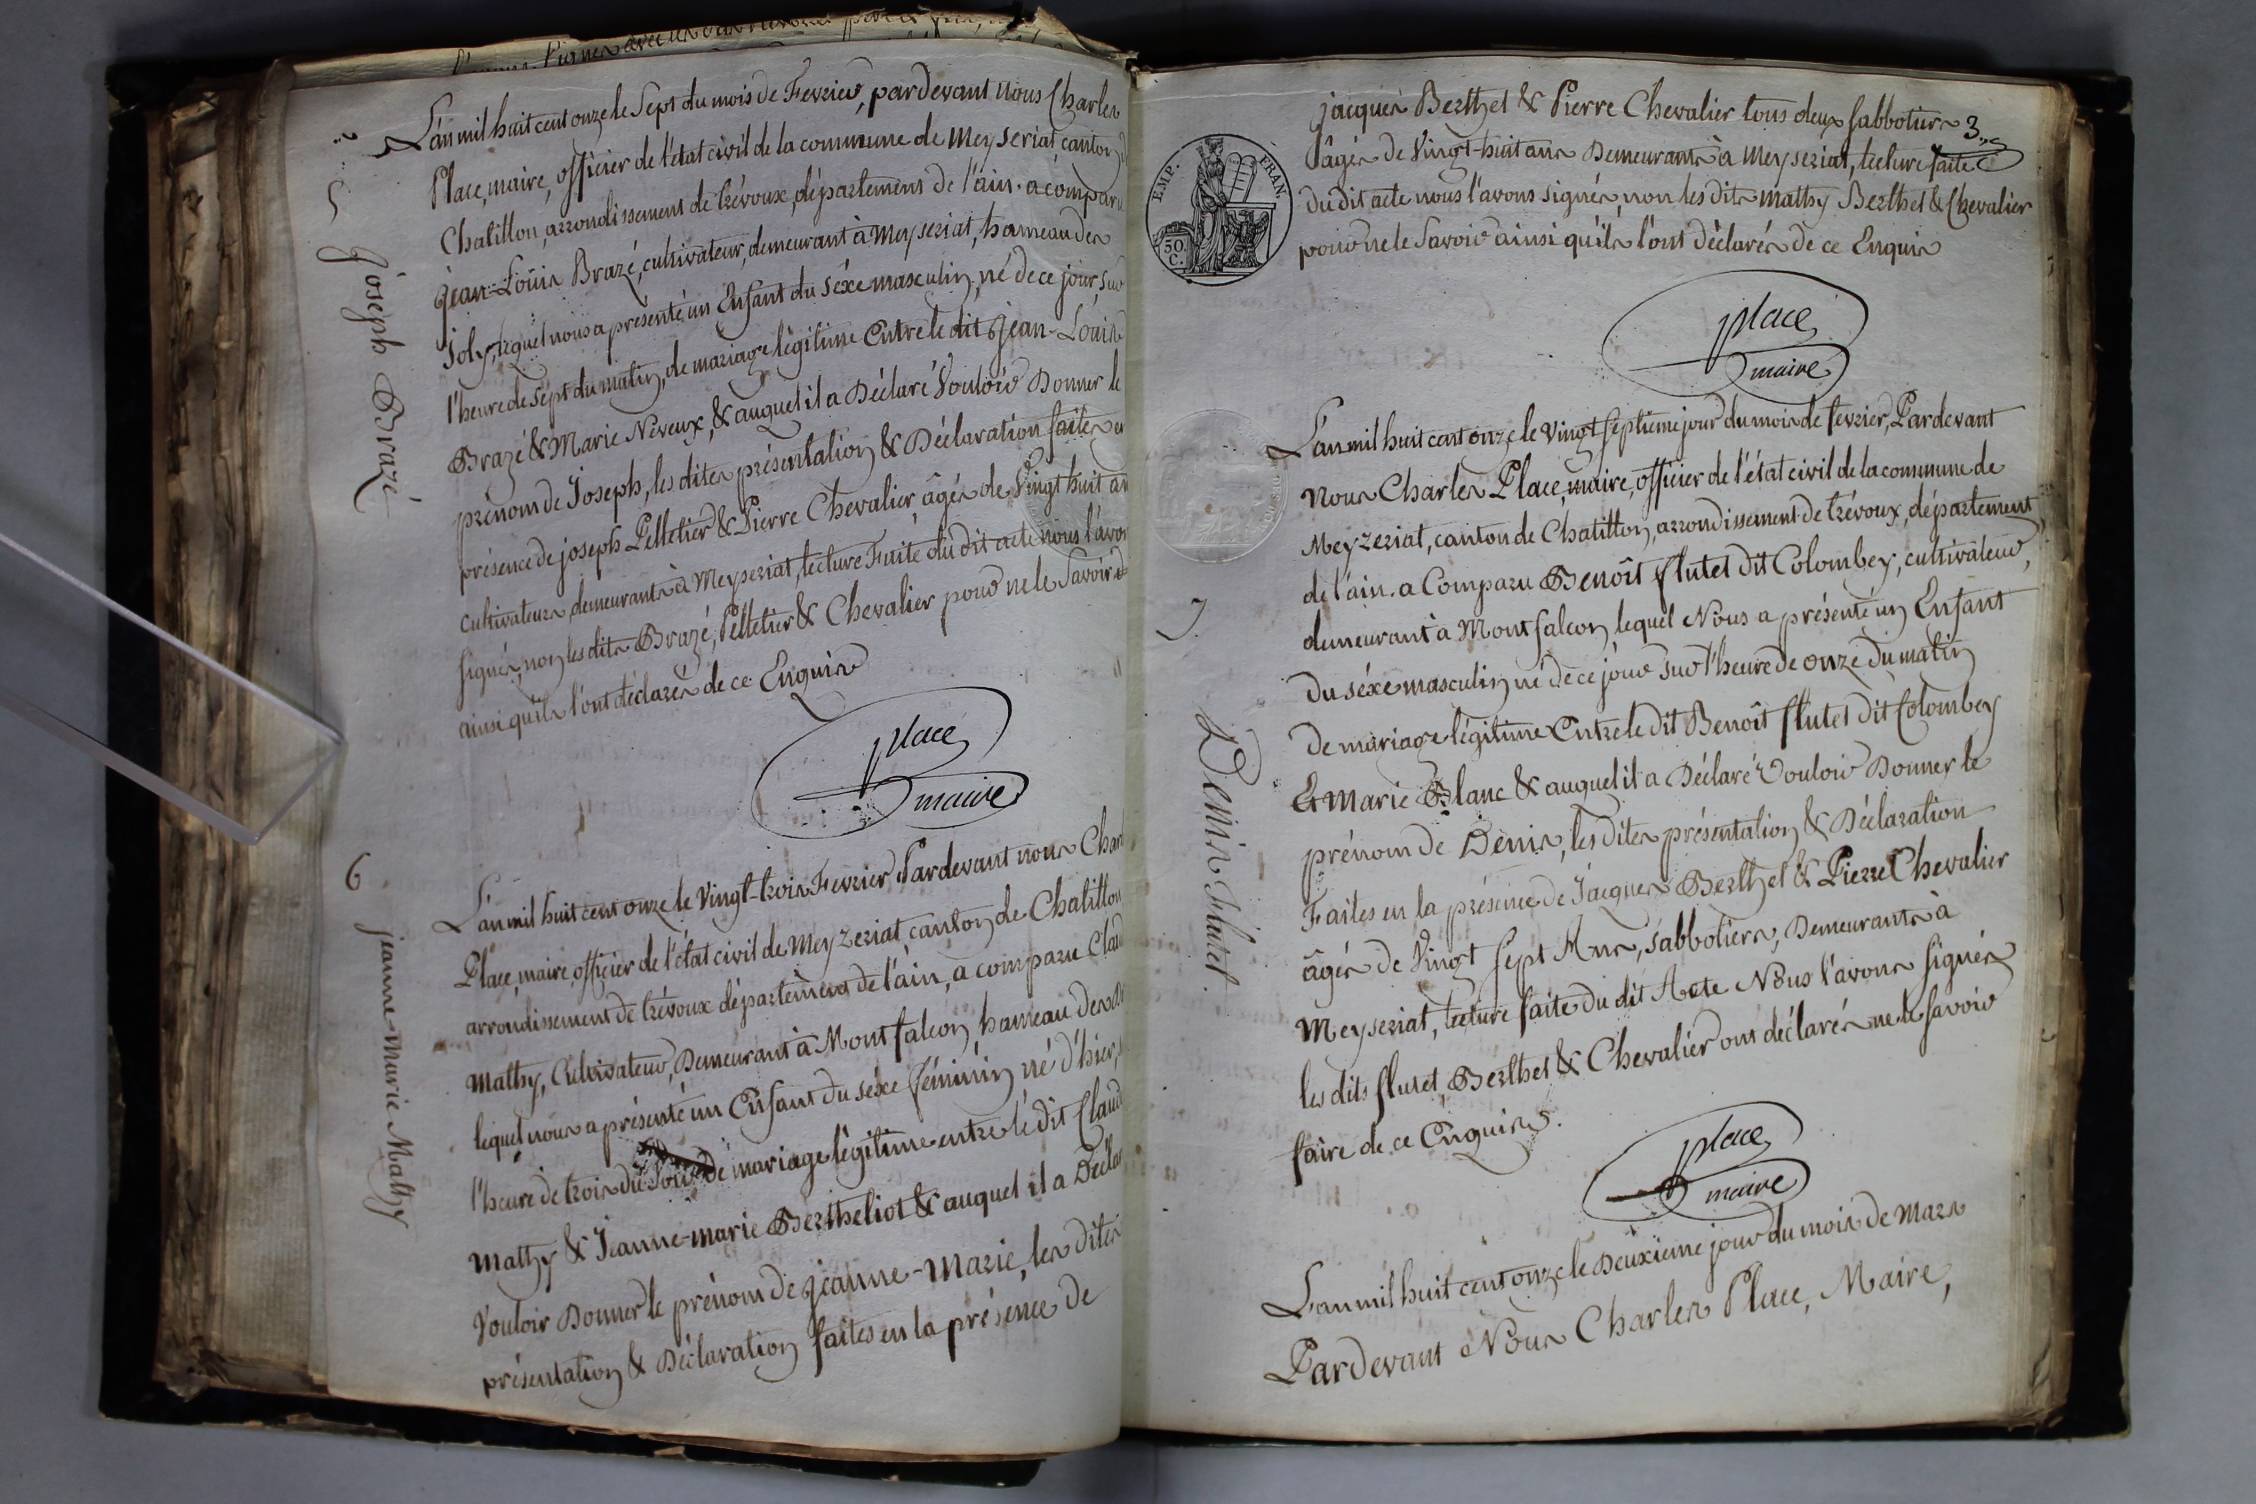 5
Joseph Brazé
L'an mil huit cent onze le Sept du mois de Fevrier, pardevant nous Charles
Place, maire, officier de l'état civil de la commune de Meyseriat canton
Chatillon, arrondissement de trévoux, département de l'ain. a comparu
jean-Louis Brazé, cultivateur, demeurant à Meyseriat, hameau des
Joly, lequel nous a présenté un Enfant du séxe masculin, né de ce jour, sur
l'heure de sept du matin, de mariage légitime Entre le dit Jean-Louis
Brazé & Marie Neveux, & auquel il a Déclaré Vouloir Donner le
prénom de Joseph, les dites présentation & Déclaration faites
présence de joseph Pelletier & Pierre Chevalier, âgés de Vingt huit
cultivateurs, demeurants à Meyseriat, lecture Faite du dit acte nous l'avo
signés, non les dits Brazé, Pelletier & Chevalier pour ne le Savoir
ainsi qu'ils l'ont déclarés de ce Enquis
place
maire
6
jeanne-marie Mathy
L'an mil huit cent onze le Vingt-trois Fevrier Pardevant nous Charl
Place, maire, officier de l'état civil de Meyzeriat, canton de Chatillon
arrondissement de trévoux département de l'ain, a comparu Clau
Mathy, Cultivateur, Demeurant à Montfalcon, hameau des
lequel nous a présenté un Enfant du séxe féminin né d'hier,
l'heure de trois du Soir de mariage légitime entre le dit Claud
Mathy & Jeanne-marie Bertheliot & auquel il a Décla
Vouloir Donner le prénom de jeanne-Marie, les dites
présentation & Déclaration faites en la présence de
3
EMP. FRAN.
50. C.
jacques Berthet & Pierre Chevalier tous deux sabbotiers
âgés de Vingt-huit ans Demeurants à Meyseriat, lecture faite
du dit acte nous l'avons signés, non les dits Mathy Berthet & Chevalier
pour ne le Savoir ainsi qu'ils l'ont déclarés de ce Enquis
place
maire
7.
Denis Flutet.
L'an mil huit cent onze le Vingt septième jour du mois de fevrier, Pardevant
Nous Charles Place, maire, officier de l'état civil de la commune de
Meyzeriat, canton de Chatillon, arrondissement de trévoux, département
de l'ain. a Comparu Benoît flutet dit Colombey, cultivateur,
demeurant à Montfalcon, lequel Nous a présenté un Enfant
du séxe masculin né de ce jour sur l'heure de onze du matin
De mariage légitime Entre le dit Benoît flutet dit Colombey
Et Marie Blanc & auquel il a Déclaré Vouloir Donner le
prénom de Denis, les dites présentation & Déclaration
Faites en la présence de Jacques Berthet & Pierre Chevalier
âgés de Vingt sept Ans, sabbotiers, Demeurants à
Meyseriat, lecture faite du dit Acte Nous l'avons signés
les dits flutet, Berthet & Chevalier ont déclarés ne le savoir
faire de ce Enquis.
place
maire
L'an mil huit cent onze le Deuxième jour du mois de Mars
Pardevant Nous Charles Place, Maire,